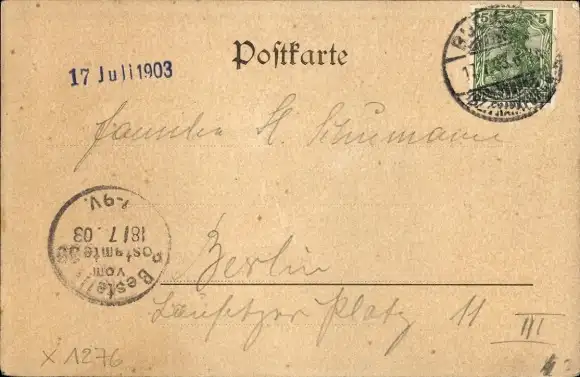 Postkarte
17 Juli 1903
5 5
Familie H. Schumann
Bestellt
vom
Postamte 36
18/7. 03
Berlin
Lausitzer Platz 11
III
X 1276